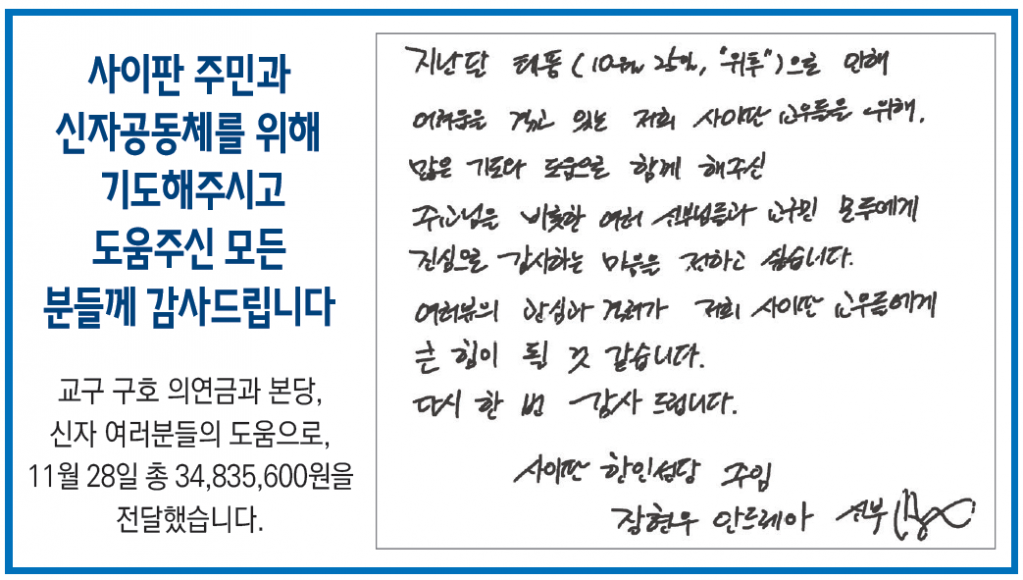 사이판 주민과
신자공동체를 위해
기도해주시고
도움주신 모든
분들께 감사드립니다
교구 구호 의연금과 본당,
신자 여러분들의 도움으로,
11월 28일 총 34,835,600원을
전달했습니다.
지난달 태풍(10월 25일, "위투")으로 인해
어려움을 겪고 있는 저희 사이판 교우들을 위해,
많은 기도와 도움으로 함께 해주신
주교님을 비롯한 여러 신부님들과 교구민 모두에게
진심으로 감사하는 마음을 전하고 싶습니다.
여러분의 관심과 격려가 저희 사이판 교우들에게
큰 힘이 될 것 같습니다.
다시 한 번 감사 드립니다.
사이판 한인성당 주임
장현우 안드레아 신부